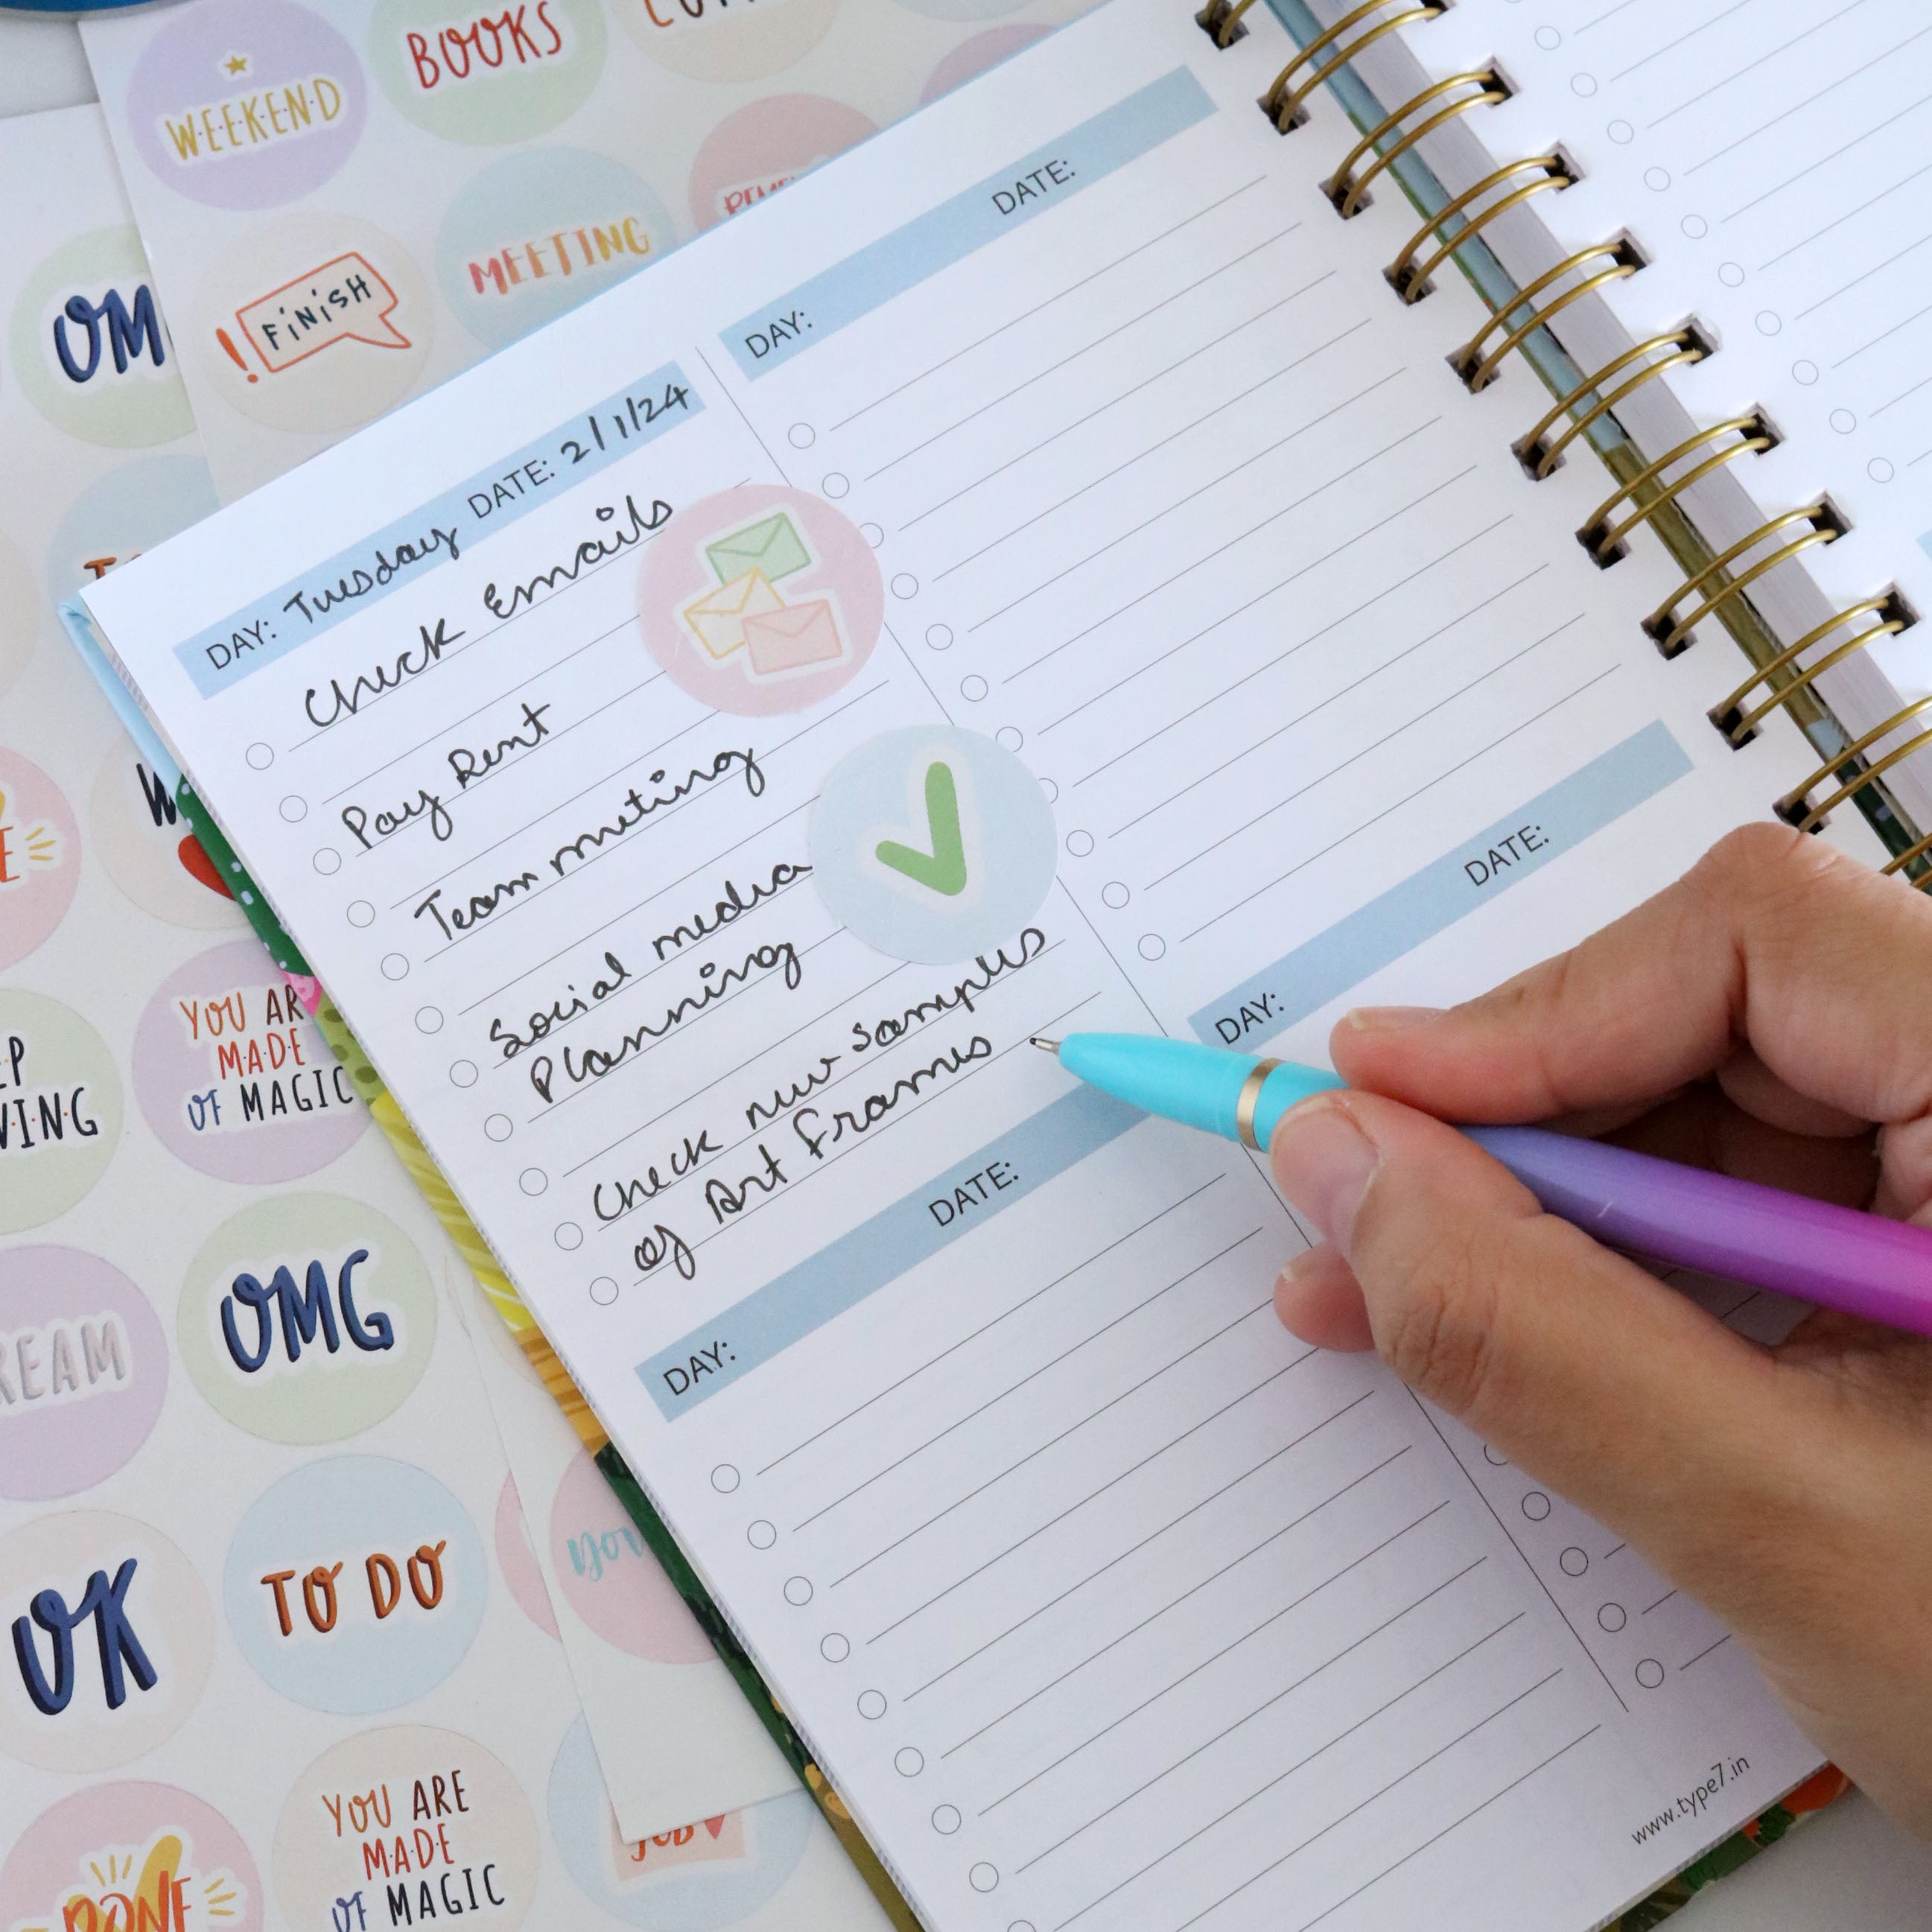 WEEKEND
BOOKS
FINISH
MEETING
DATE:
DAY:
DAY: Tuesday DATE: 2/1/24
Check Emails
Pay Rent
Team meeting
Social media
Planning
Check new samples
of Art frames
DAY: DATE:
DAY: DATE:
www.type7.in
OM
YOU AR
MADE
OF MAGIC
P
VING
OMG
REAM
OK
TO DO
YOU ARE
MADE
OF MAGIC
DONE
JOB